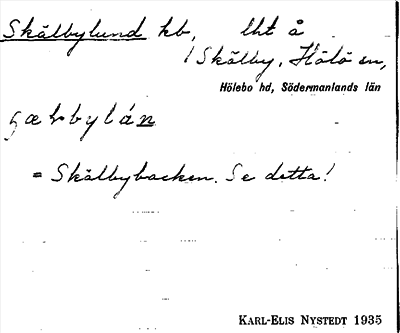 Skälbylund kb, lht å
/ Skälby, Hölö sn,
Hölebo hd, Södermanlands län
ꞔælbylán
= Skälbybacken. Se detta!
KARL-ELIS NYSTEDT 1935